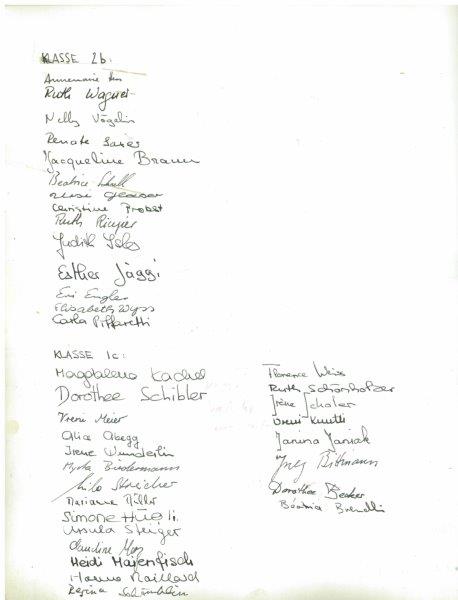 KLASSE 2b:
Annemarie
Ruth Wagner
Nelly Vögelin
Renate
Jacqueline Braun
Beatrice
Susi Gloor
Christine Probst
Ruth Ringier
Judith
Esther Jäggi
Evi Engler
Elisabeth Wyss
Carla Pifferetti
KLASSE 1c:
Magdalena Kachel
Dorothee Schibler
Vreni Meier
Alice Abegg
Irene Wunderlin
Myrta Biedermann
Streicher
Marianne Müller
Simone Hügli
Ursula Steiger
Claudine
Heidi Maienfisch
Hanna Maillard
Regina
Florence Weiss
Ruth Schönholzer
Irène Schaler
Vreni Knutti
Janina Janiak
Inez Bitmann
Dorothee Becker
Beatrice Brendli